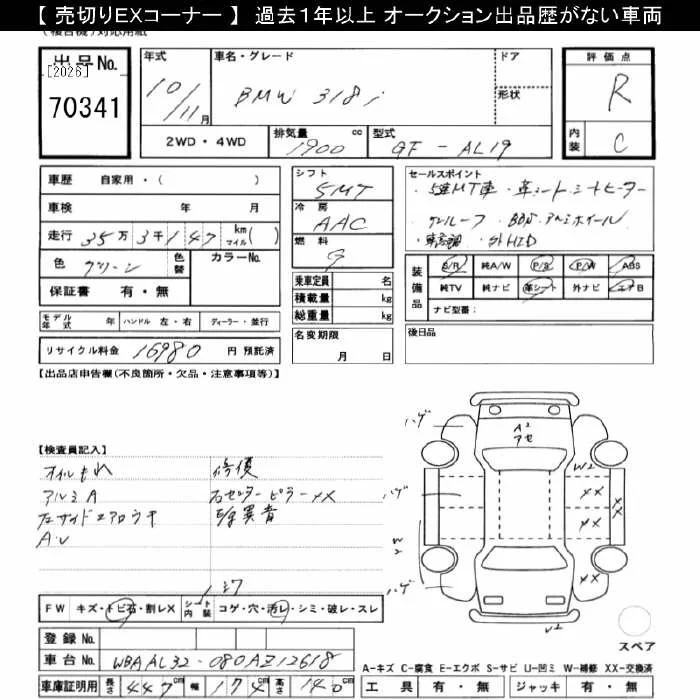 【売切りEXコーナー】 過去１年以上 オークション出品歴がない車両
(複合機)対応用紙
出品No.
[2026]
70341
年式
10/11月
車名・グレード
BMW 318i
ドア
形状
評価点
R
内装
C
2WD・4WD
排気量
1900 cc
型式
GF-AL19
車歴 自家用・( )
車検 年 月
走行 35万3千147 km マイル( )
色 グリーン
色替
カラーNo.
保証書 有・無
シフト
5MT
冷房
AAC
燃料
G
乗車定員 名
積載量 kg
総重量 kg
名変期限
月 日
セールスポイント
・5速MT車・革シート シートヒーター
サンルーフ BBS アルミホイール
・外HID
装備品
S/R 純A/W P/S P/W ABS
純TV 純ナビ 革シート 外ナビ エアB
ナビ型番：
後日品
モデル年式 年 ハンドル 左・右 ディーラー・並行
リサイクル料金 16980 円 預託済
【出品店申告欄(不良箇所・欠品・注意事項等)】
【検査員記入】
オイルもれ 修復
アルミA 右センターピラーXX
左サイドエアロワレ 異音
A・U
ハゲ
ハゲ
ハゲ
A2
アセ
W2
W2
XX
XX
XX
XX
U2
FW キズ・トビ石・割レX
シート内装 コゲ・穴・汚レ・シミ・破レ・スレ
登録No.
車台No. WBAAL32-080AZ12618
車庫証明用 長さ 447cm 幅 174cm 高さ 140cm
スペア
A-キズ C-腐食 E-エクボ S-サビ U-凹ミ W-補修 XX-交換済
工具 有・無 ジャッキ 有・無